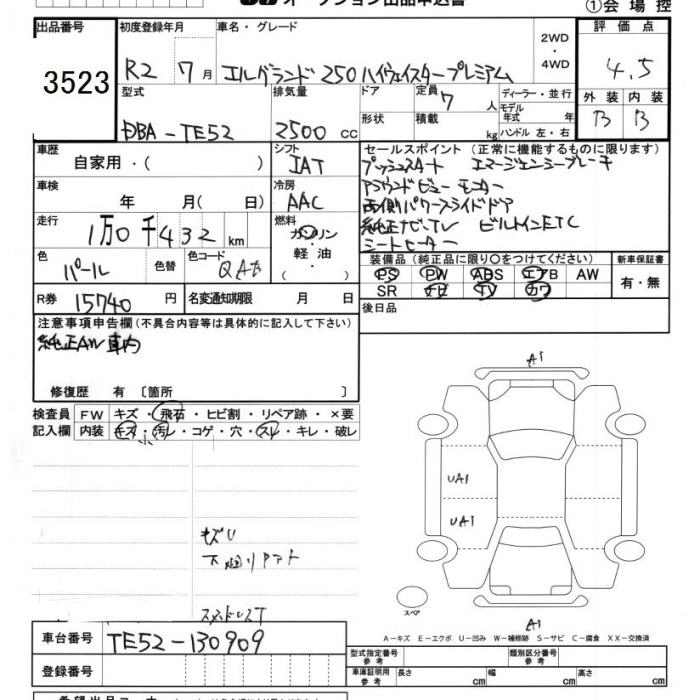 オークション出品申込書
①会場控
出品番号 3523
初度登録年月 R2 7月
車名・グレード エルグランド 250 ハイウェイスタープレミアム
2WD・4WD
評価点 4.5
外装 B 内装 B
型式 DBA-TE52
排気量 2500 cc
ドア 形状
定員 7人 積載 kg
ディーラー・並行
モデル年式 年式
ハンドル 左・右
車歴 自家用・( )
シフト IAT
車検 年 月( 日)
冷房 AAC
走行 1万0千432 km
燃料 ガソリン・軽油・( )
色 パール 色替
色コード QAB
R券 15740円
名変通知期限 月 日
セールスポイント(正常に機能するものに限ります)
プッシュスタート エマージェンシーブレーキ
アラウンドビューモニター
両側パワースライドドア
純正ナビ・TV ビルトインETC
シートヒーター
装備品(純正品に限り○をつけてください)
PS PW ABS エアB AW
SR ナビ TV カワ
新車保証書 有・無
後日品
注意事項申告欄(不具合内容等は具体的に記入して下さい)
純正AW 車内
修復歴 有〔箇所 〕
検査員記入欄
FW キズ・飛石・ヒビ割・リペア跡・×要
内装 キズ・汚レ・コゲ・穴・スレ・キレ・破レ
キズU
A1
UA1
UA1
A1
スペア
A-キズ E-エクボ U-凹み W-補修跡 S-サビ C-腐食 XX-交換済
車台番号 TE52-130909
登録番号
型式指定番号 参考
類別区分番号 参考
車庫証明用 参考 長さ cm 幅 cm 高さ cm